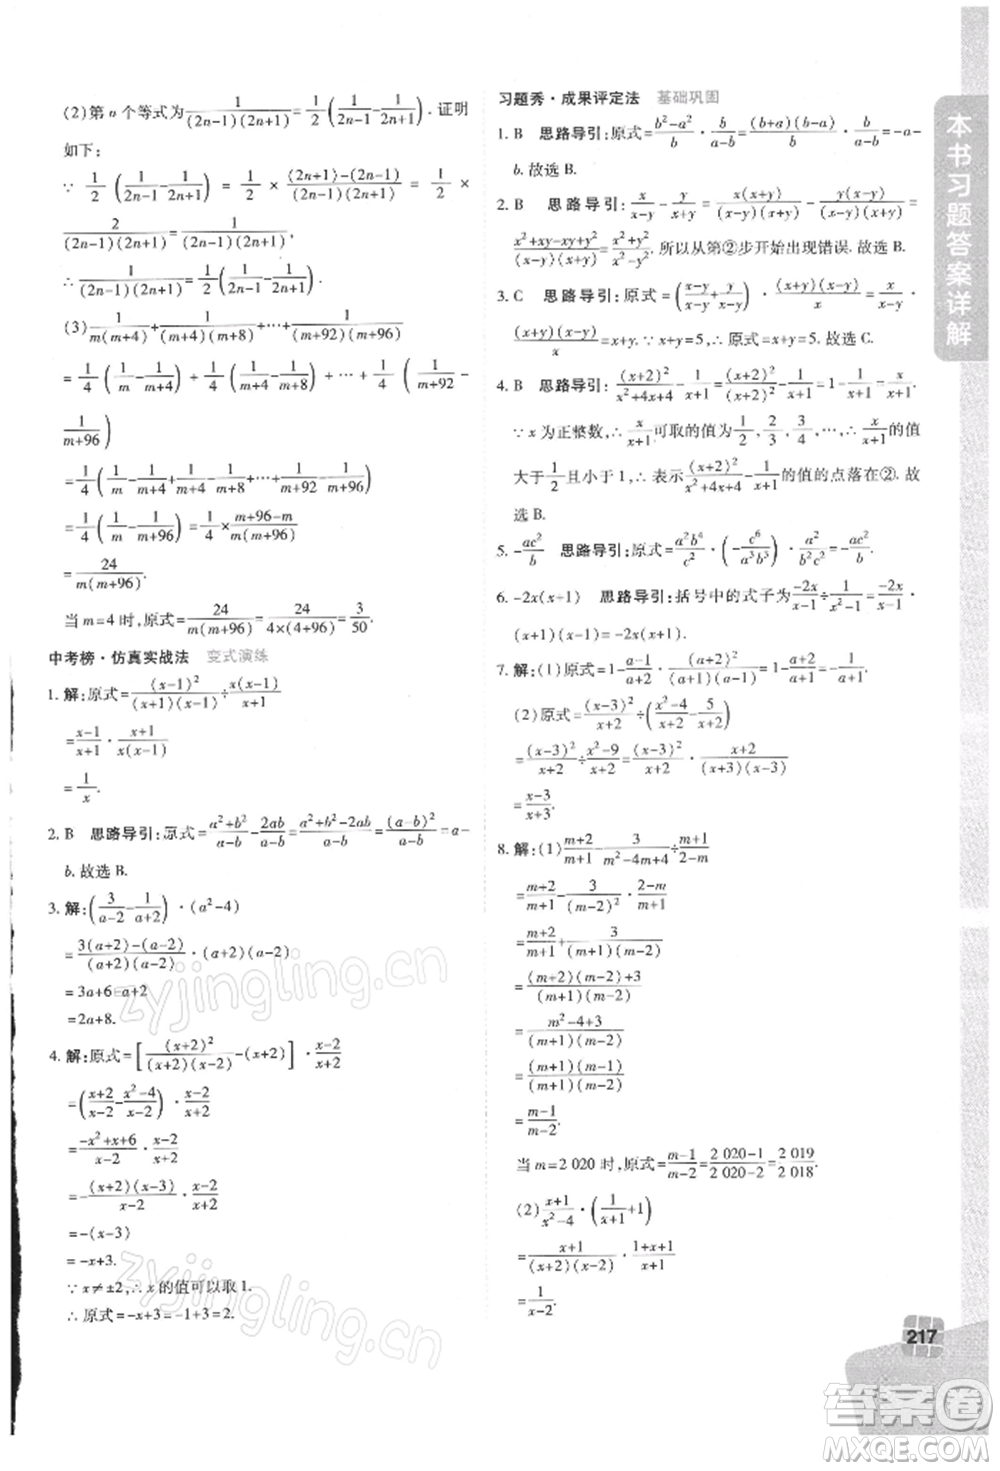 (2)第 n 个等式为1/((2n-1)(2n+1))=1/2(1/(2n-1)-1/(2n+1)). 证明
如下:
∵ 1/2(1/(2n-1)-1/(2n+1))=1/2×((2n+1)-(2n-1))/((2n-1)(2n+1))=1/2×
2/((2n-1)(2n+1))=1/((2n-1)(2n+1)),
∴ 1/((2n-1)(2n+1))=1/2(1/(2n-1)-1/(2n+1)).
(3)1/(m(m+4))+1/((m+4)(m+8))+…+1/((m+92)(m+96))
=1/4(1/m-1/(m+4))+1/4(1/(m+4)-1/(m+8))+…+1/4(1/(m+92)-
1/(m+96))
=1/4(1/m-1/(m+4)+1/(m+4)-1/(m+8)+…+1/(m+92)-1/(m+96))
=1/4(1/m-1/(m+96))=1/4×(m+96-m)/(m(m+96))
=24/(m(m+96)).
当 m=4 时,原式=24/(m(m+96))=24/(4×(4+96))=3/50.
中考榜·仿真实战法 变式演练
1. 解:原式=(x-1)²/((x+1)(x-1))÷x(x-1)/(x+1)
=(x-1)/(x+1)·(x+1)/(x(x-1))
=1/x.
2. B 思路导引:原式=(a²+b²)/(a-b)-2ab/(a-b)=(a²+b²-2ab)/(a-b)=(a-b)²/(a-b)=a-
b. 故选 B.
3. 解:(3/(a-2)-1/(a+2))·(a²-4)
=(3(a+2)-(a-2))/((a+2)(a-2))·(a+2)(a-2)
=3a+6-a+2
=2a+8.
4. 解:原式=[(x+2)²/((x+2)(x-2))-(x+2)]·(x-2)/(x+2)
=((x+2)/(x-2)-(x²-4)/(x-2))·(x-2)/(x+2)
=(-x²+x+6)/(x-2)·(x-2)/(x+2)
=-(x+2)(x-3)/(x-2)·(x-2)/(x+2)
=-(x-3)
=-x+3.
∵ x≠±2,∴ x 的值可以取 1.
∴ 原式=-x+3=-1+3=2.
习题秀·成果评定法 基础巩固
1. B 思路导引:原式=(b²-a²)/b·b/(a-b)=(b+a)(b-a)/b·b/(a-b)=-a-
b. 故选 B.
2. B 思路导引:x/(x-y)-y/(x+y)=x(x+y)/((x-y)(x+y))-y(x-y)/((x+y)(x-y))=
(x²+xy-xy+y²)/((x-y)(x+y))=(x²+y²)/((x+y)(x-y)). 所以从第②步开始出现错误. 故选 B.
3. C 思路导引:原式=((x-y)/(x-y)+y/(x-y))·(x+y)(x-y)/x=x/(x-y)·
(x+y)(x-y)/x=x+y. ∵ x+y=5,∴ 原式=5. 故选 C.
4. B 思路导引:(x+2)²/(x²+4x+4)-1/(x+1)=(x+2)²/(x+2)²-1/(x+1)=1-1/(x+1)=x/(x+1).
∵ x 为正整数,∴ x/(x+1)可取的值为1/2,2/3,3/4,…,∴ x/(x+1)的值
大于1/2且小于 1,∴ 表示(x+2)²/(x²+4x+4)-1/(x+1)的值的点落在②. 故
选 B.
5. -ac²/b 思路导引:原式=a²b⁴/c²·(-c⁶/(a³b³))·a²/(b²c²)=-ac²/b.
6. -2x(x+1) 思路导引:括号中的式子为-2x/(x-1)÷1/(x²-1)=-2x/(x-1)·
(x+1)(x-1)=-2x(x+1).
7. 解:(1)原式=1/(a+2)-(a-1)/(a+1)·(a+1)²/((a+1)(a-1))=1/(a+2)-1.
(2)原式=(x-3)²/(x+2)÷((x²-4)/(x+2)-5/(x+2))
=(x-3)²/(x+2)÷(x²-9)/(x+2)=(x-3)²/(x+2)·(x+2)/((x+3)(x-3))
=(x-3)/(x+3).
8. 解:(1)(m+2)/(m+1)-3/(m²-4m+4)÷(m+1)/(2-m)
=(m+2)/(m+1)-3/(m-2)²·(2-m)/(m+1)
=(m+2)/(m+1)+3/((m+1)(m-2))
=((m+2)(m-2)+3)/((m+1)(m-2))
=(m²-4+3)/((m+1)(m-2))
=(m+1)(m-1)/((m+1)(m-2))
=(m-1)/(m-2).
当 m=2 020 时,原式=(m-1)/(m-2)=(2 020-1)/(2 020-2)=2 019/2 018.
(2)(x+1)/(x²-4)·(1/(x+1)+1)
=(x+1)/((x+2)(x-2))·(1+x+1)/(x+1)
=1/(x-2).
本书习题答案详解
217
zyjingling.cn
zyjingling.cn
答案圈
MXQE.COM